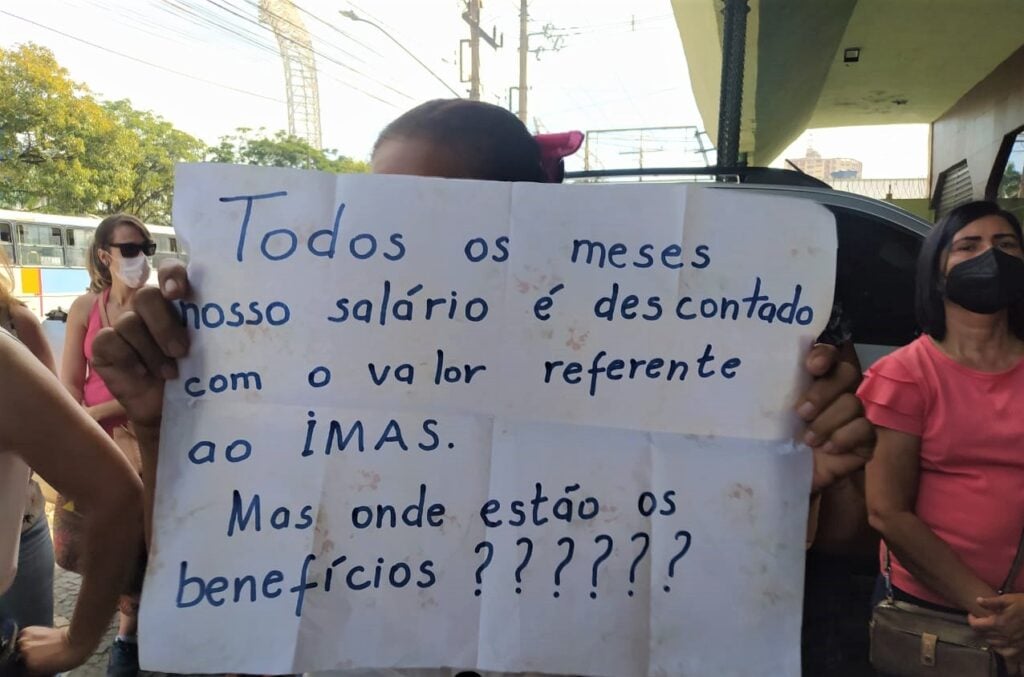 Todos os meses
nosso salário é descontado
com o valor referente
ao IMAS.
Mas onde estão os
benefícios ??????